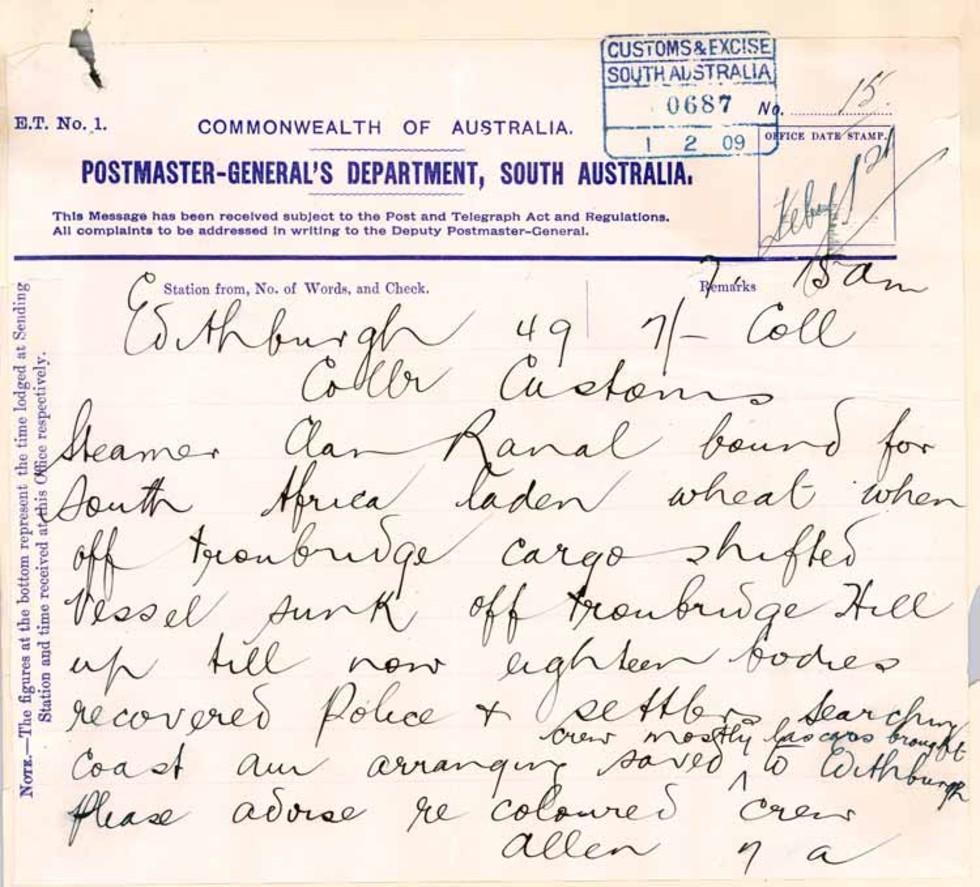 CUSTOMS & EXCISE
SOUTH AUSTRALIA
0687
1 2 09
No. 15.
E.T. No. 1.
COMMONWEALTH OF AUSTRALIA.
OFFICE DATE STAMP.
POSTMASTER-GENERAL'S DEPARTMENT, SOUTH AUSTRALIA.
This Message has been received subject to the Post and Telegraph Act and Regulations.
All complaints to be addressed in writing to the Deputy Postmaster-General.
NOTE.—The figures at the bottom represent the time lodged at Sending
Station and time received at this Office respectively.
Station from, No. of Words, and Check.
Remarks
15 am
Edithburgh 49 7/- Coll
Collr Customs
Steamer Clan Ranal bound for
South Africa laden wheat when
off tronbridge cargo shifted
Vessel sunk off tronbridge Hill
up till now eighteen bodies
recovered Police + settlers searching
crew mostly lascars brought
Coast am arranging saved ^ to Edithburgh
Please advise re coloured crew
Allen 7 a